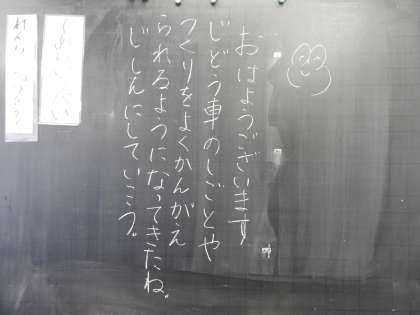 おはようございます
じどう車のしごとや
つくりをよくかんがえ
られるようになってきたね。
じしんにしていこう。